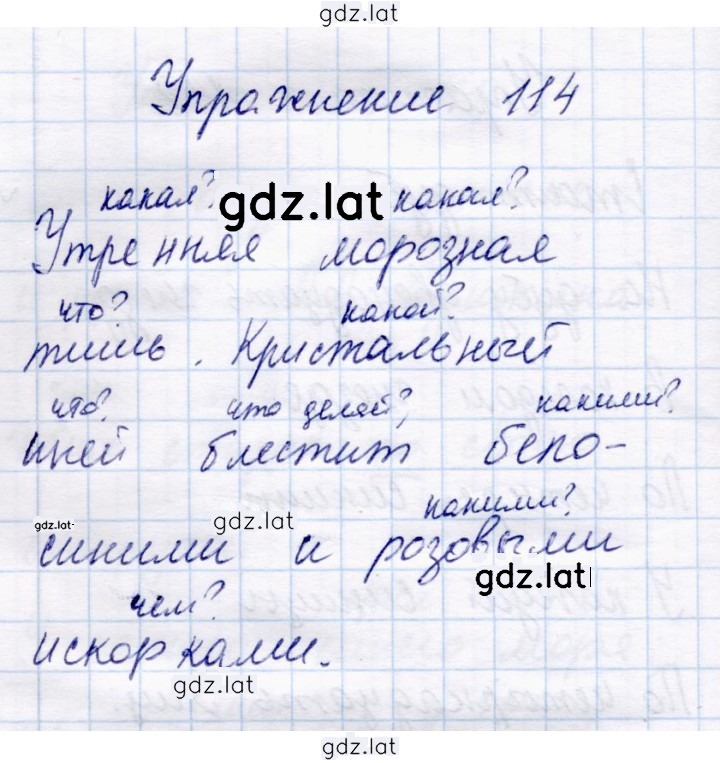 gdz.lat
Упражнение 114
какая? gdz.lat какая?
Утренняя морозная
что? какой?
тишь. Кристальный
что? что делай? какими?
иней блестит бело-
gdz.lat gdz.lat какими?
синими и розовыми
gdz.lat
чем?
искорками.
gdz.lat
gdz.lat